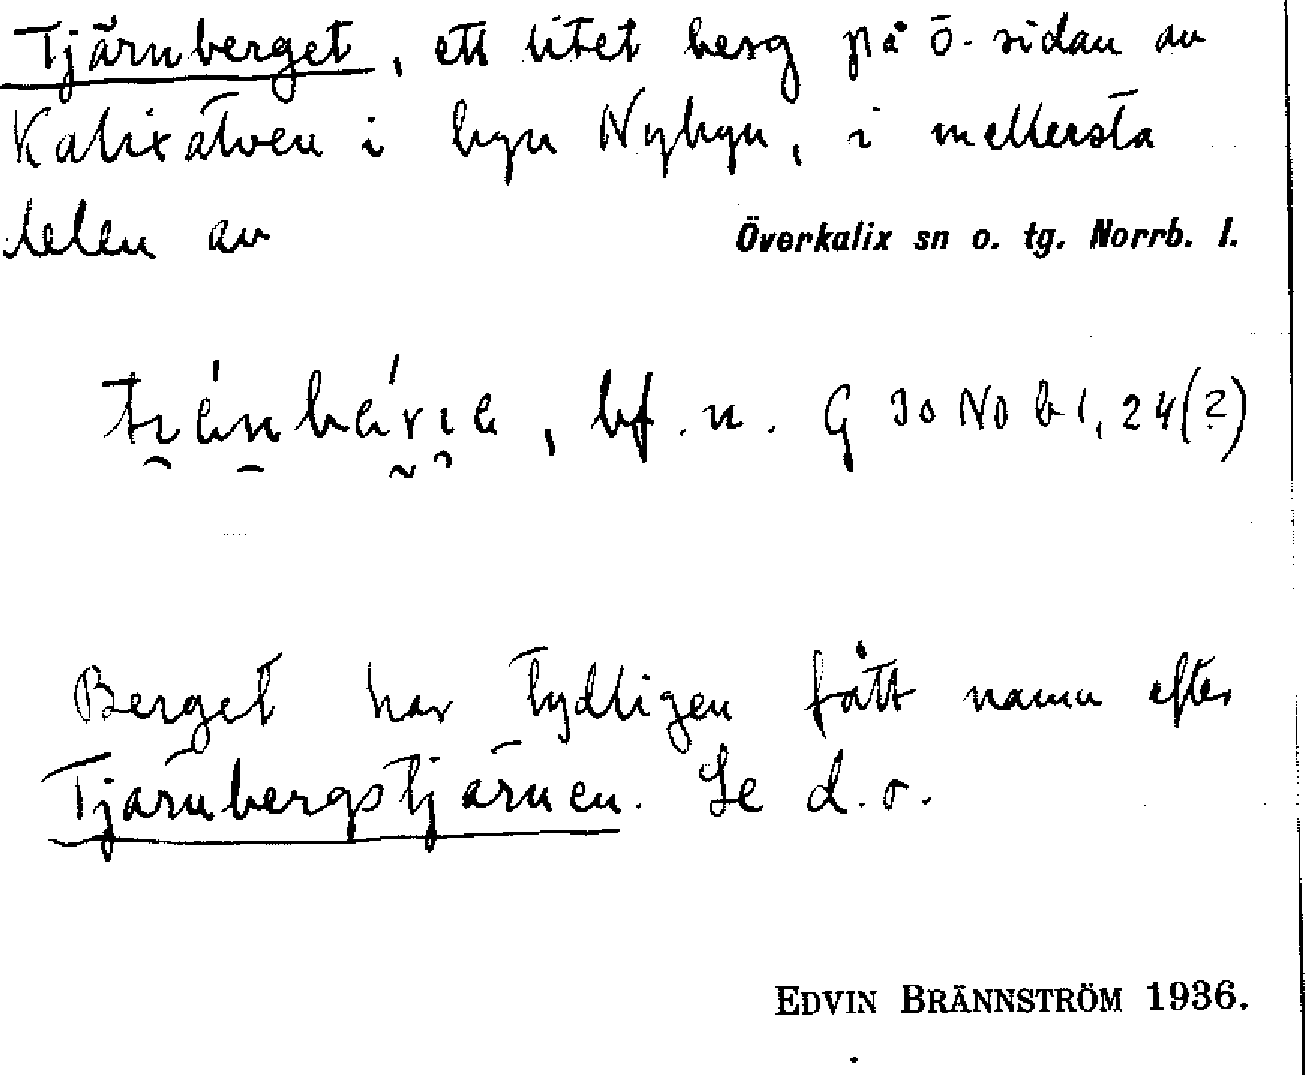 Tjärnberget, ett litet berg på ö-sidan av
Kalixälven i byn Nybyn, i mellersta
delen av Överkalix sn o. tg. Norrb. l.
bf. n. G 30 No b 1, 24(?)
Berget har tydligen fått namn efter
Tjärnbergstjärnen. Se d. o.
EDVIN BRÄNNSTRÖM 1936.